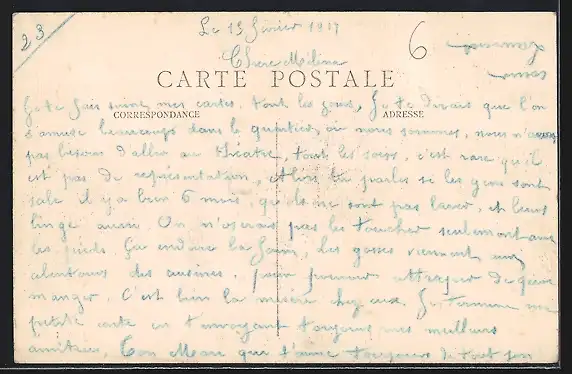 23
Le 13 février 1917
6
Chère Mélina
CARTE POSTALE
CORRESPONDANCE
ADRESSE
Je te fais suivre mes cartes, tout les jours, Je te dirais que l'on
s'amuse beaucoups dans le quartier, ou nous sommes, nous n'avons
pas besoin d'aller au théatre, tout les soirs, c'est rare qu'il
est pas de représentation, Alors tu parles si les gens sont
sale il y a bien 6 mois, qu'ils ne sont pas laver, et leurs
linge aussi. On n'oserais pas les toucher seulement avec
les pieds. Ça endure la faim, les gosses viennent aux
alentours des cuisines, pour pouvoir attraper de quoi
manger. C'est bien la misère chez eux. Je termine ma
petite carte en t'envoyant toujours mes meilleurs
amitiées, Ton Mari que t'aime toujours de tout son